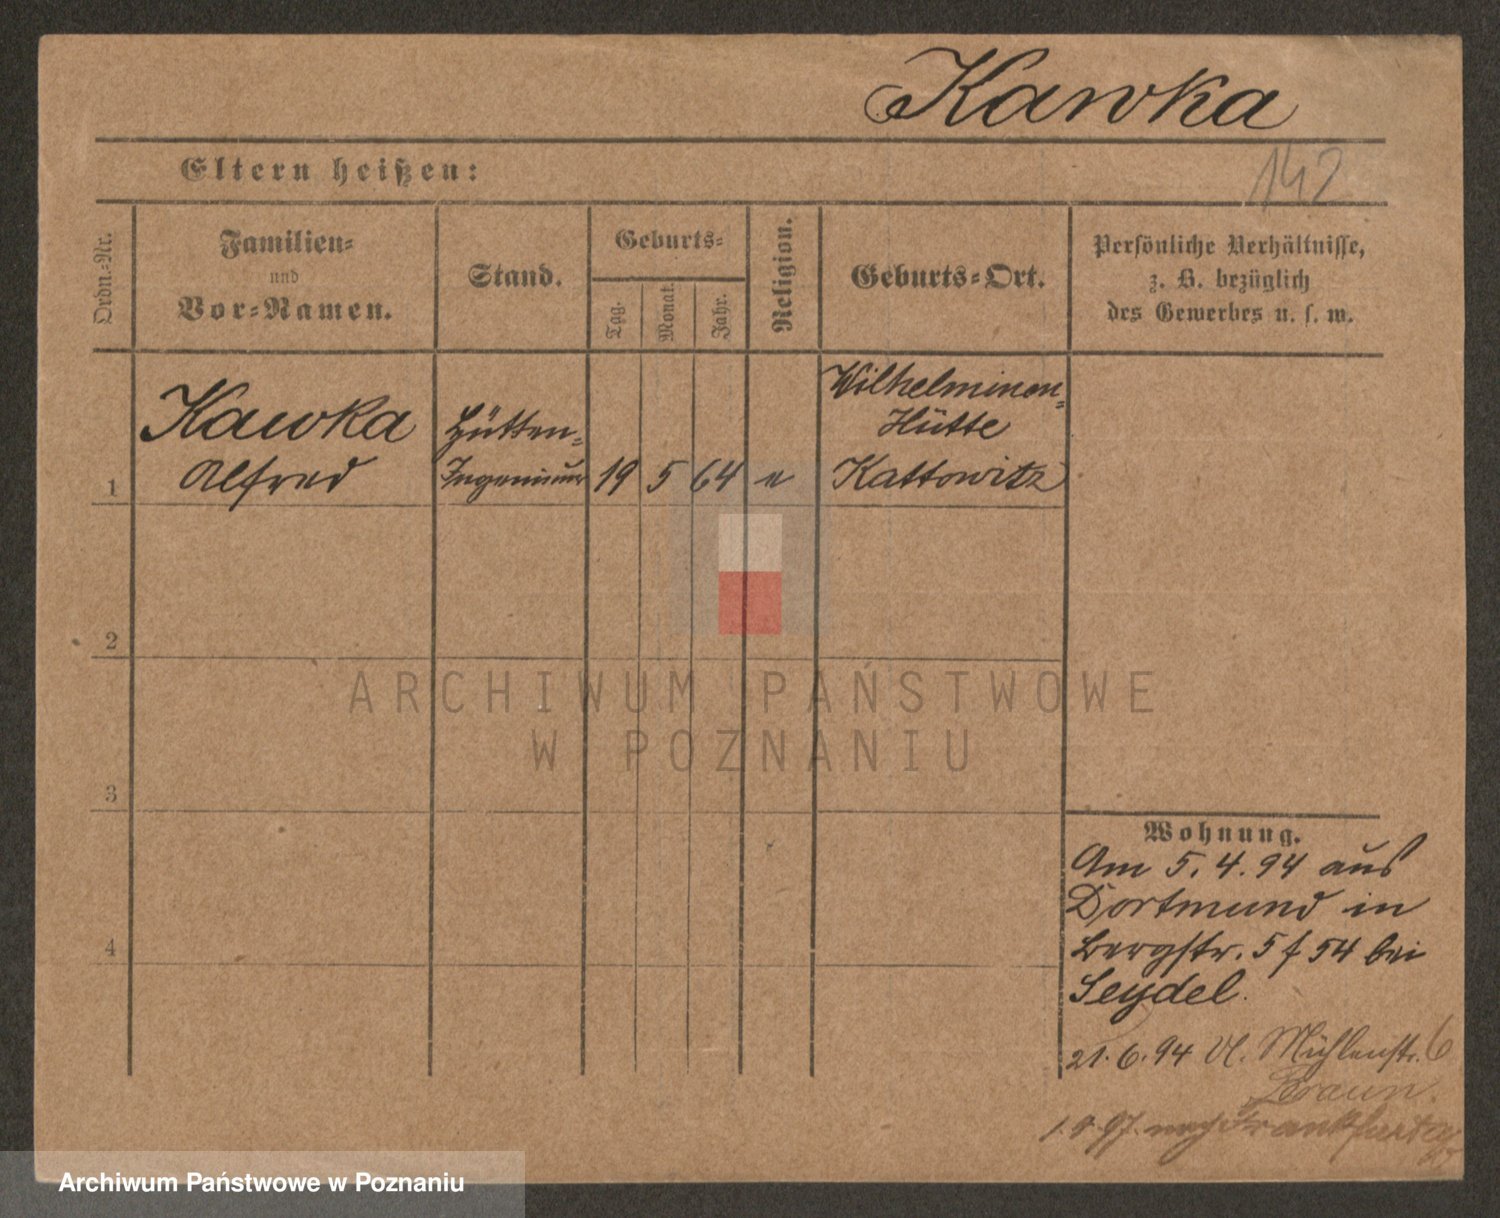 Kawka
Eltern heißen:
142
Ordn.-Nr.
Familien-
und
Vor-Namen.
Stand.
Geburts-
Tag.
Monat.
Jahr.
Religion.
Geburts-Ort.
Persönliche Verhältnisse,
z. B. bezüglich
des Gewerbes u. s. w.
1
Kawka
Alfred
Hütten-
Ingenieur
19
5
64
e
Wilhelminen-
Hütte
Kattowitz
2
3
4
ARCHIWUM PAŃSTWOWE
W POZNANIU
Wohnung.
Am 5. 4. 94 aus
Dortmund in
Bergstr. 5 f 54 bei
Seydel.
21. 6. 94 Mühlenstr. 6
Braun.
97. nach Frankfurt
Archiwum Państwowe w Poznaniu